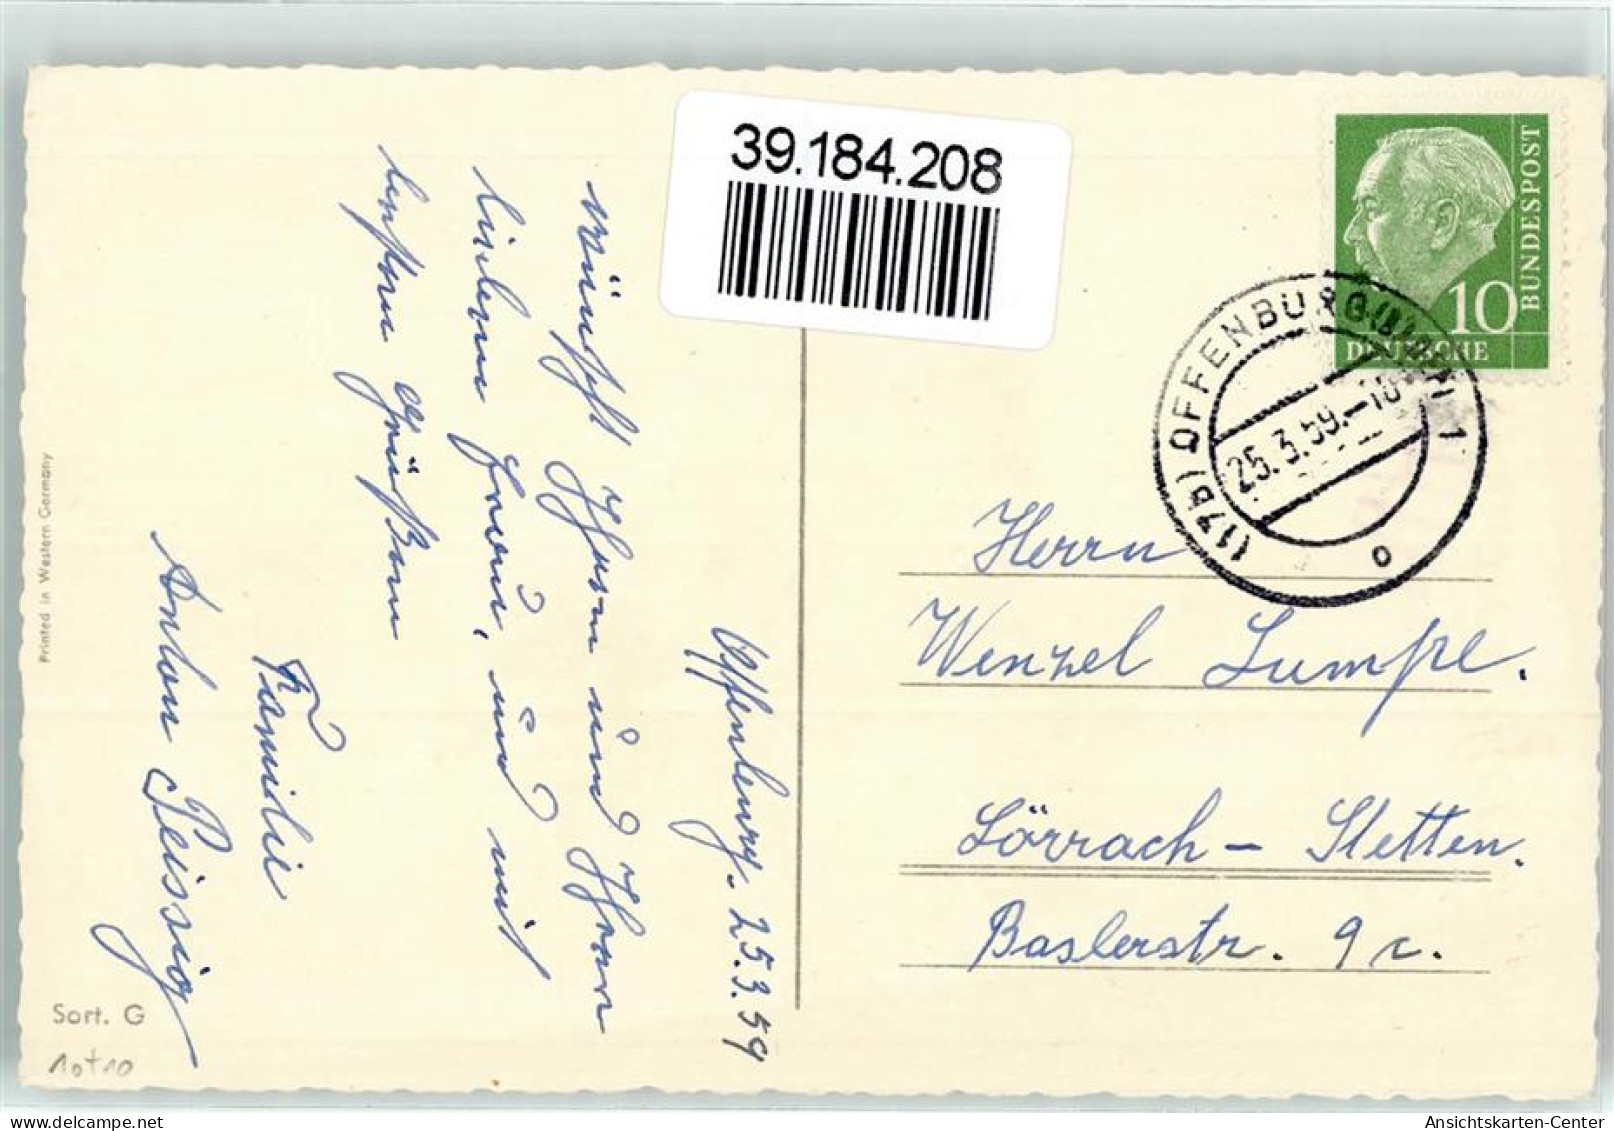 39.184.208
BUNDESPOST
10
DEUTSCHE
(17b) OFFENBURG (BADEN) 1
25.3.59.-18
c
Offenburg. 25.3.59
wünscht Ihnen und Ihrer
lieben Frau, und mit
besten Grüßen
Familie
Anton Peissig
Herrn
Wenzel Lumpe.
Lörrach - Stetten.
Baslerstr. 9c.
Printed in Western Germany
Sort. G
10+10
www.delcampe.net
Ansichtskarten-Center